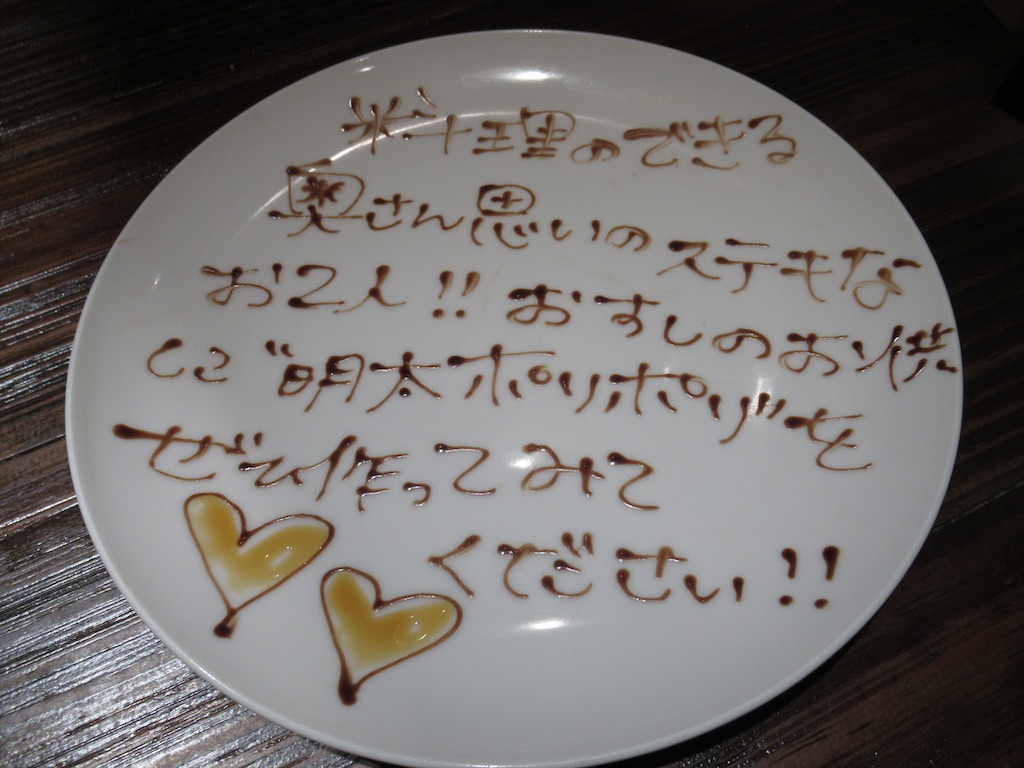 料理のできる
奥さん思いのステキな
お2人!! おすしのお供
に"明太ポリポリ"を
ぜひ作ってみて
ください!!